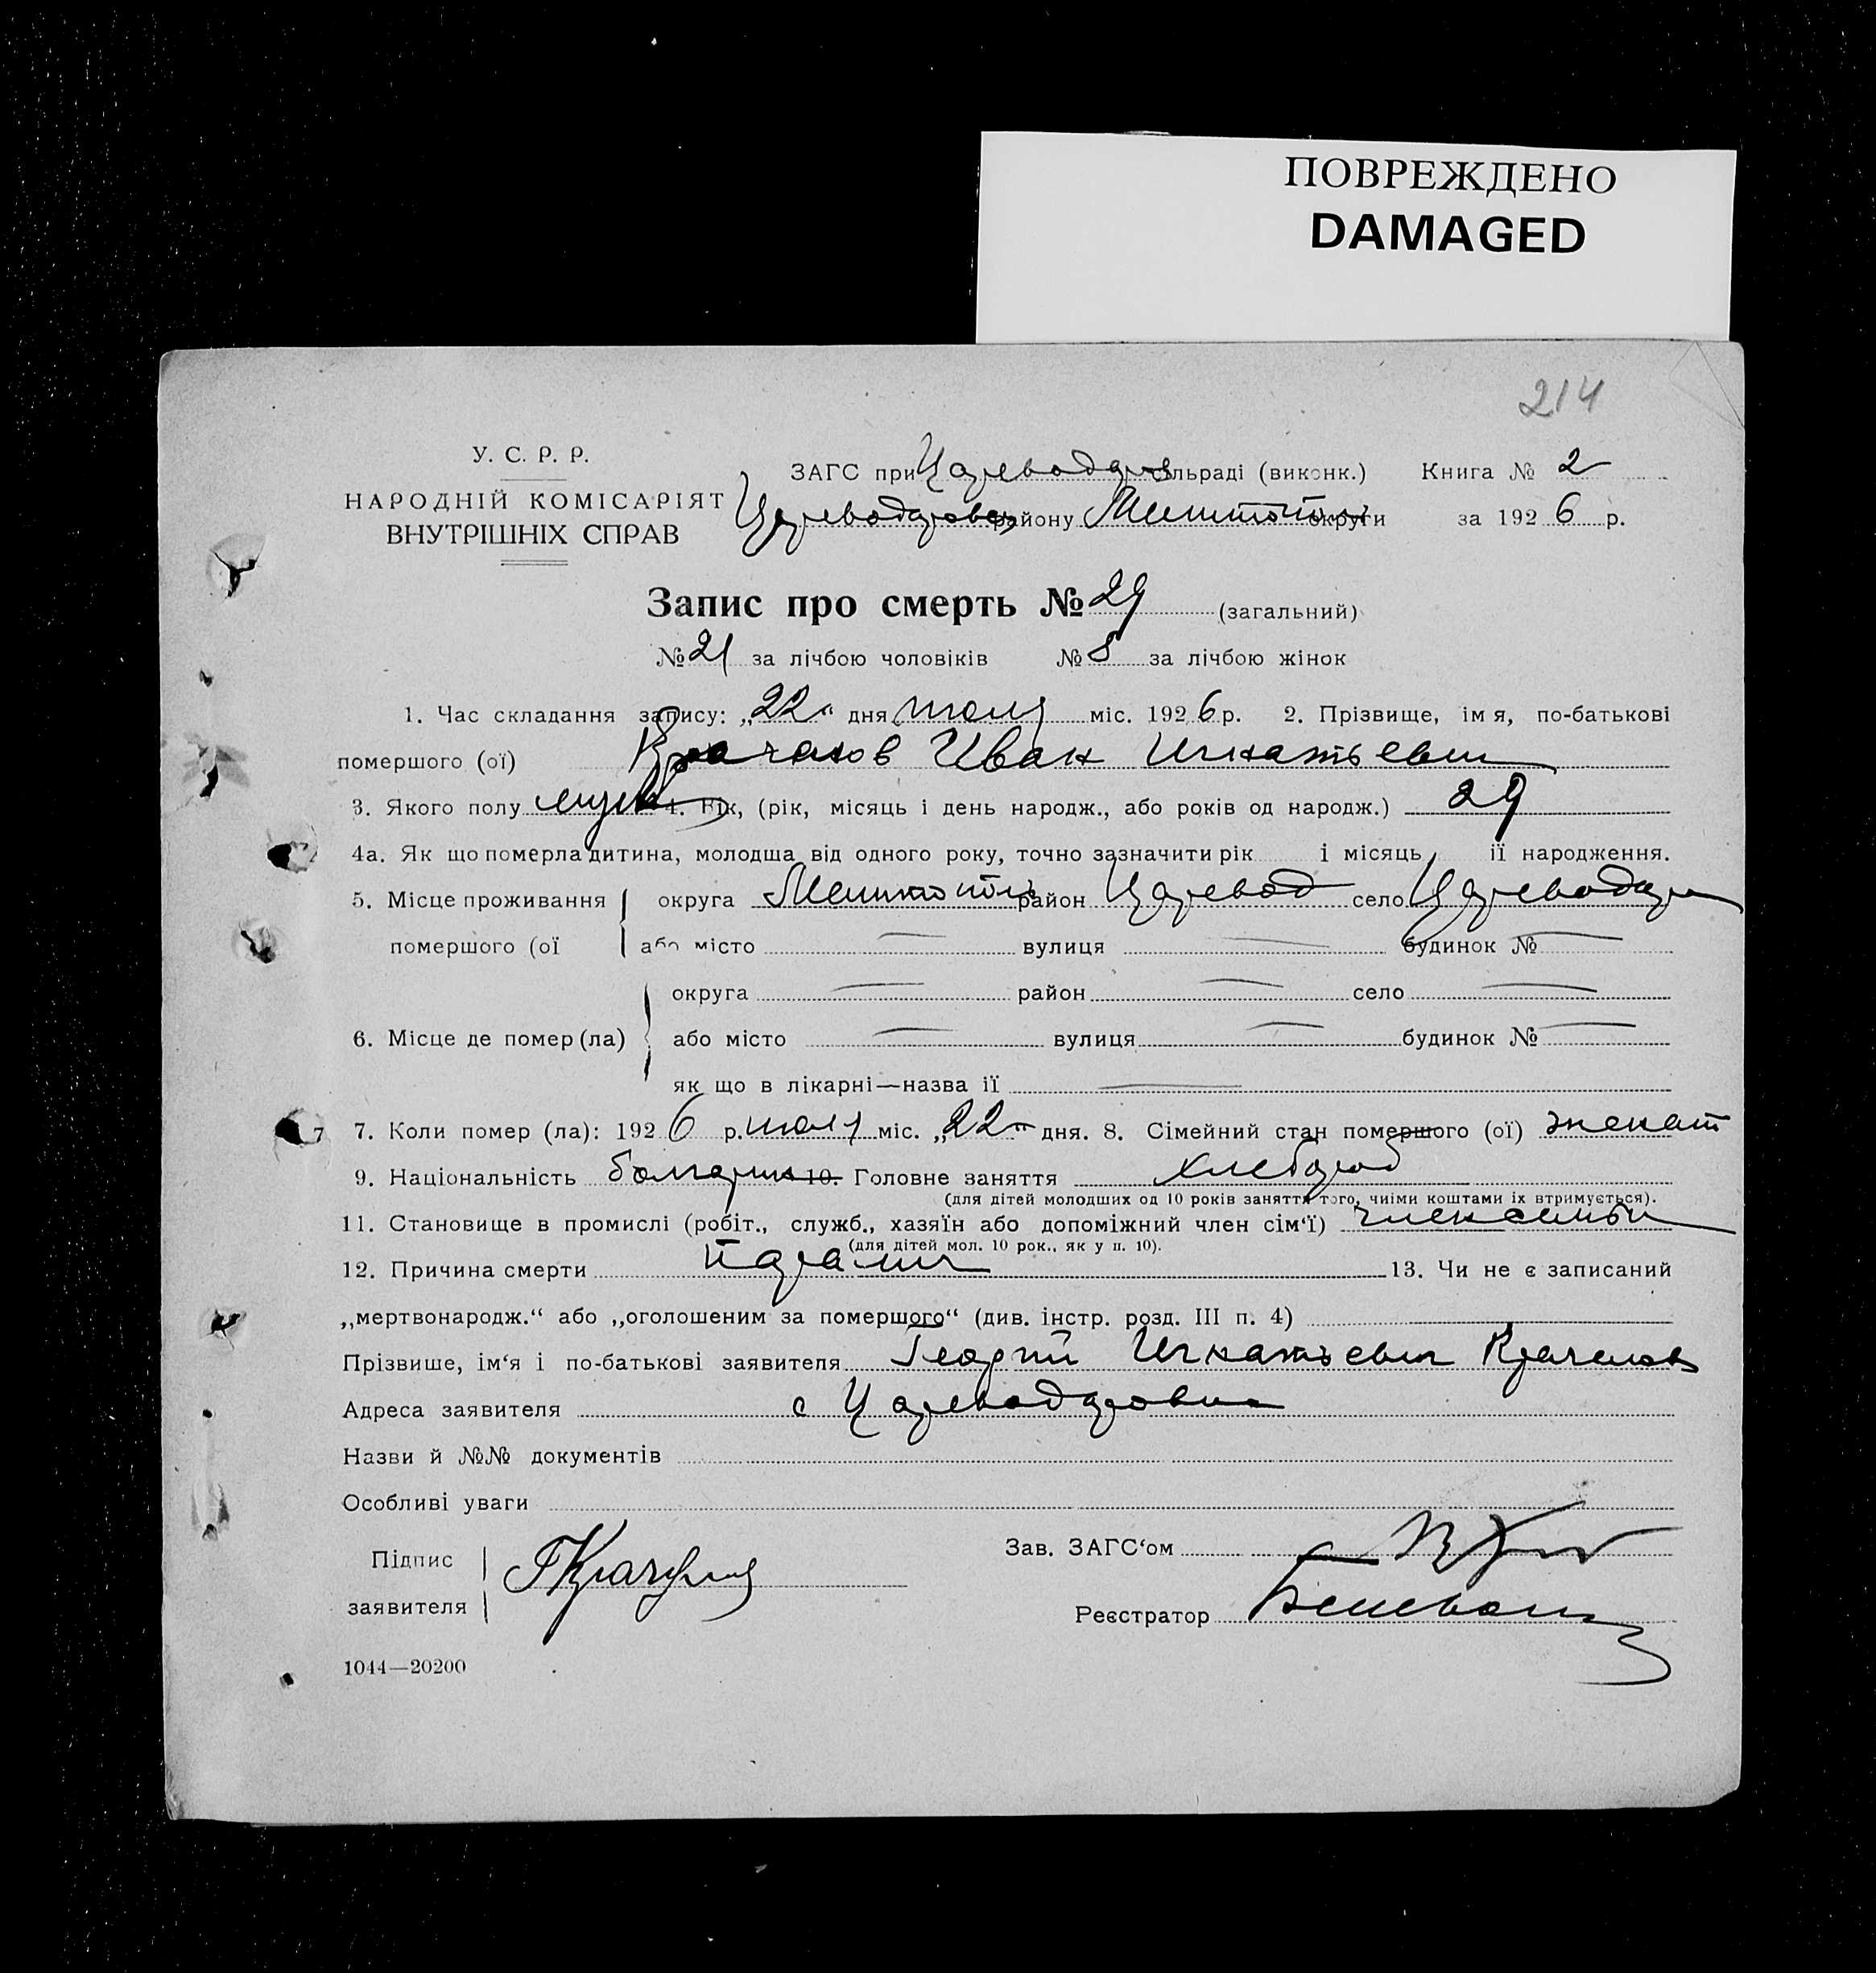 ПОВРЕЖДЕНО
DAMAGED
214
У. С. Р. Р.
НАРОДНІЙ КОМІСАРІЯТ
ВНУТРІШНІХ СПРАВ
ЗАГС при сільраді (виконк.) Книга № 2
району округи за 1926 р.
Запис про смерть № 29 (загальний)
№ 21 за лічбою чоловіків № 8 за лічбою жінок
1. Час складання запису: „22“ дня июля міс. 1926 р. 2. Прізвище, імя, по-батькові
помершого (ої) Иван Игнатьевич
3. Якого полу 4. Вік, (рік, місяць і день народж., або років од народж.) 29
4а. Як що померла дитина, молодша від одного року, точно зазначити рік і місяць її народження.
5. Місце проживання округа район Царевод село
помершого (ої або місто — вулиця — будинок № —
округа — район — село —
6. Місце де помер (ла) або місто — вулиця — будинок № —
як що в лікарні—назва її —
7 7. Коли помер (ла): 1926 р. июля міс. „22“ дня. 8. Сімейний стан помершого (ої) женат
9. Національність болгарин 10. Головне заняття хлебороб
(для дітей молодших од 10 років заняття того, чиїми коштами їх втримується).
11. Становище в промислі (робіт., служб., хазяїн або допоміжний член сім‘ї) член семьи
(для дітей мол. 10 рок., як у п. 10).
12. Причина смерти 13. Чи не є записаний
„мертвонародж.“ або „оголошеним за помершого“ (див. інстр. розд. III п. 4)
Прізвише, ім‘я і по-батькові заявителя Георгий Игнатьевич
Адреса заявителя с Цареводаровка
Назви й №№ документів
Особливі уваги
Підпис
заявителя
Зав. ЗАГС‘ом
Реєстратор
1044—20200